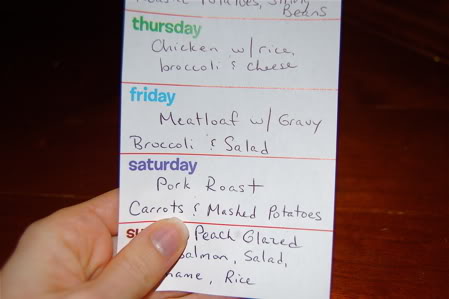 Potatoes, String
Beans
thursday
Chicken w/ rice,
broccoli & cheese
friday
Meatloaf w/ Gravy
Broccoli & Salad
saturday
Pork Roast
Carrots & Mashed Potatoes
su
Peach Glazed
Salmon, Salad,
Rice